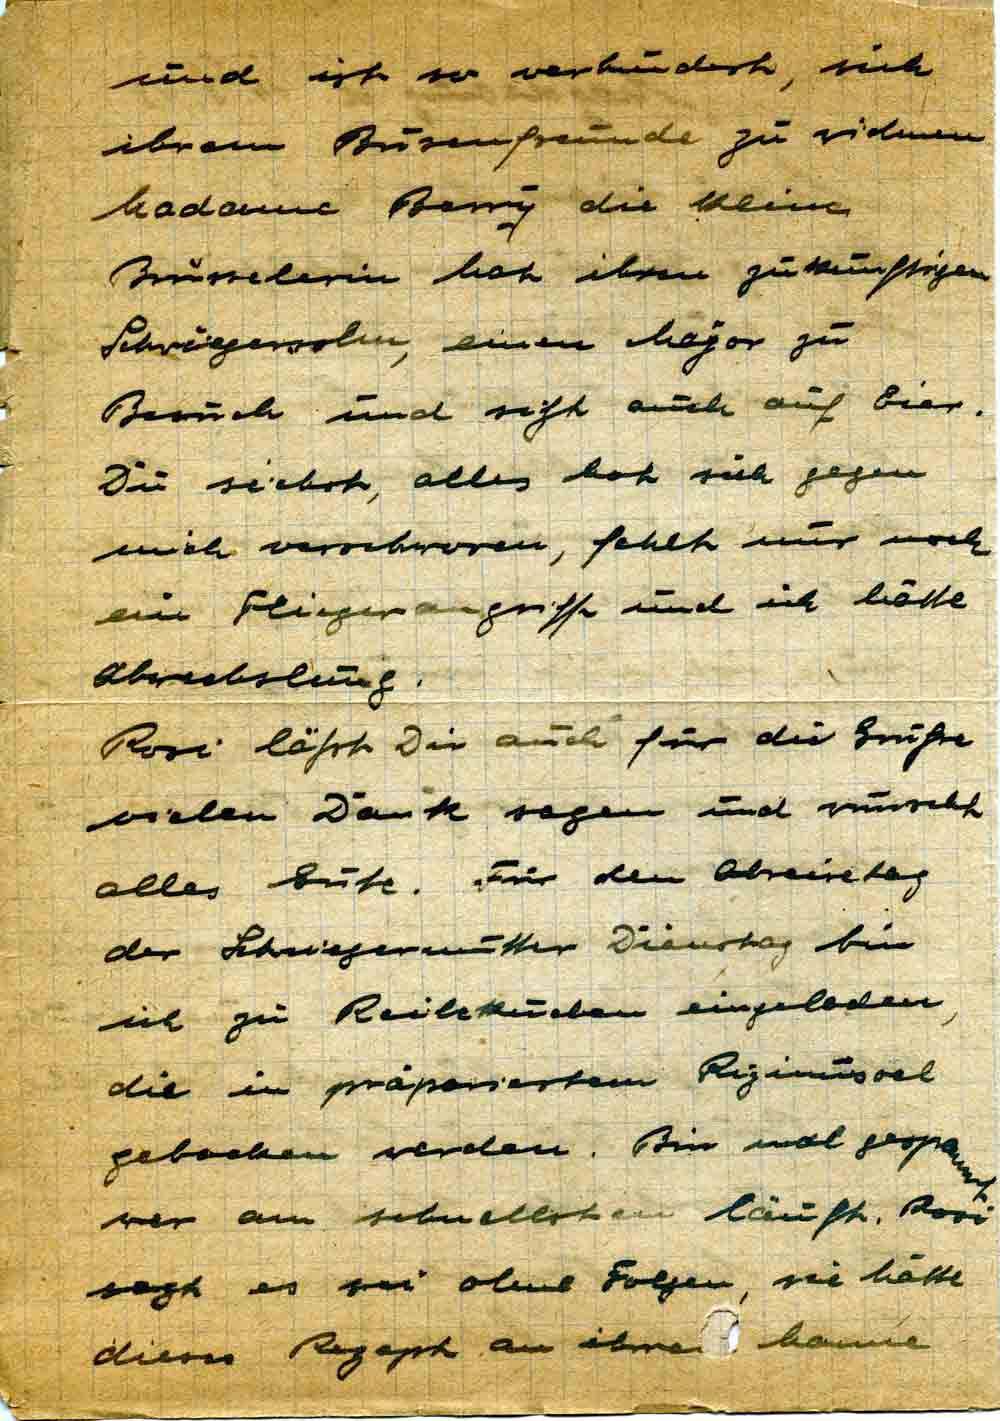 und ist so verhindert, sich
ihrem Busenfreunde zu widmen
Madame Barry die kleine
Brüsselerin hat ihren zukünftigen
Schwiegersohn, einen Major zu
Besuch und sitzt auch auf Eier.
Du siehst, alles hat sich gegen
mich verschworen, fehlt nur noch
ein Fliegerangriff und ich hätte
Abwechslung.
Rosi läßt Dir auch für die Grüße
vielen Dank sagen und wünscht
alles Gute. Für den Abreisetag
der Schwiegermutter Dienstag bin
ich zu Reibekuchen eingeladen,
die in präpariertem Rizinusoel
gebacken werden. Bin mal gespannt
wer am schnellsten läuft. Rosi
sagt es sei ohne Folgen, sie hätte
dieses Rezept an ihrem Manne